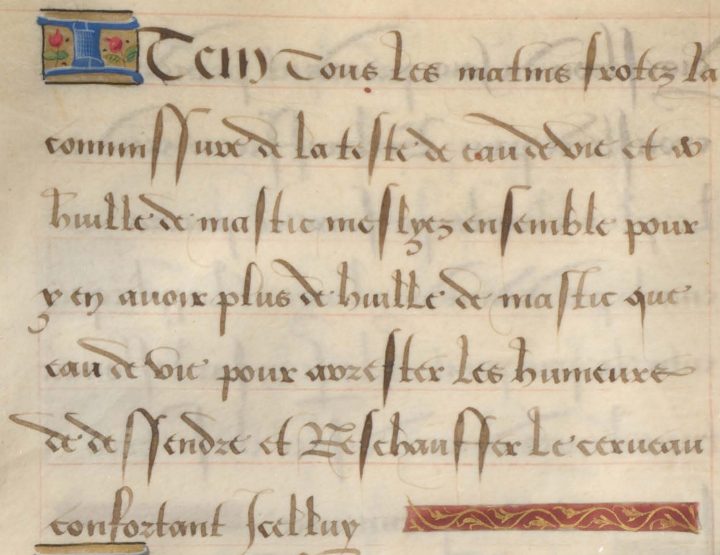 ITem Tous les matins frotez la
commissure de la teste de eau de vie et &
huille de mastic meslyez ensemble pour
y en avoir plus de huille de mastic que
eau de vie pour arrester les humeurs
de dessendre et Reschauffer le cerveau
confortant Icelluy